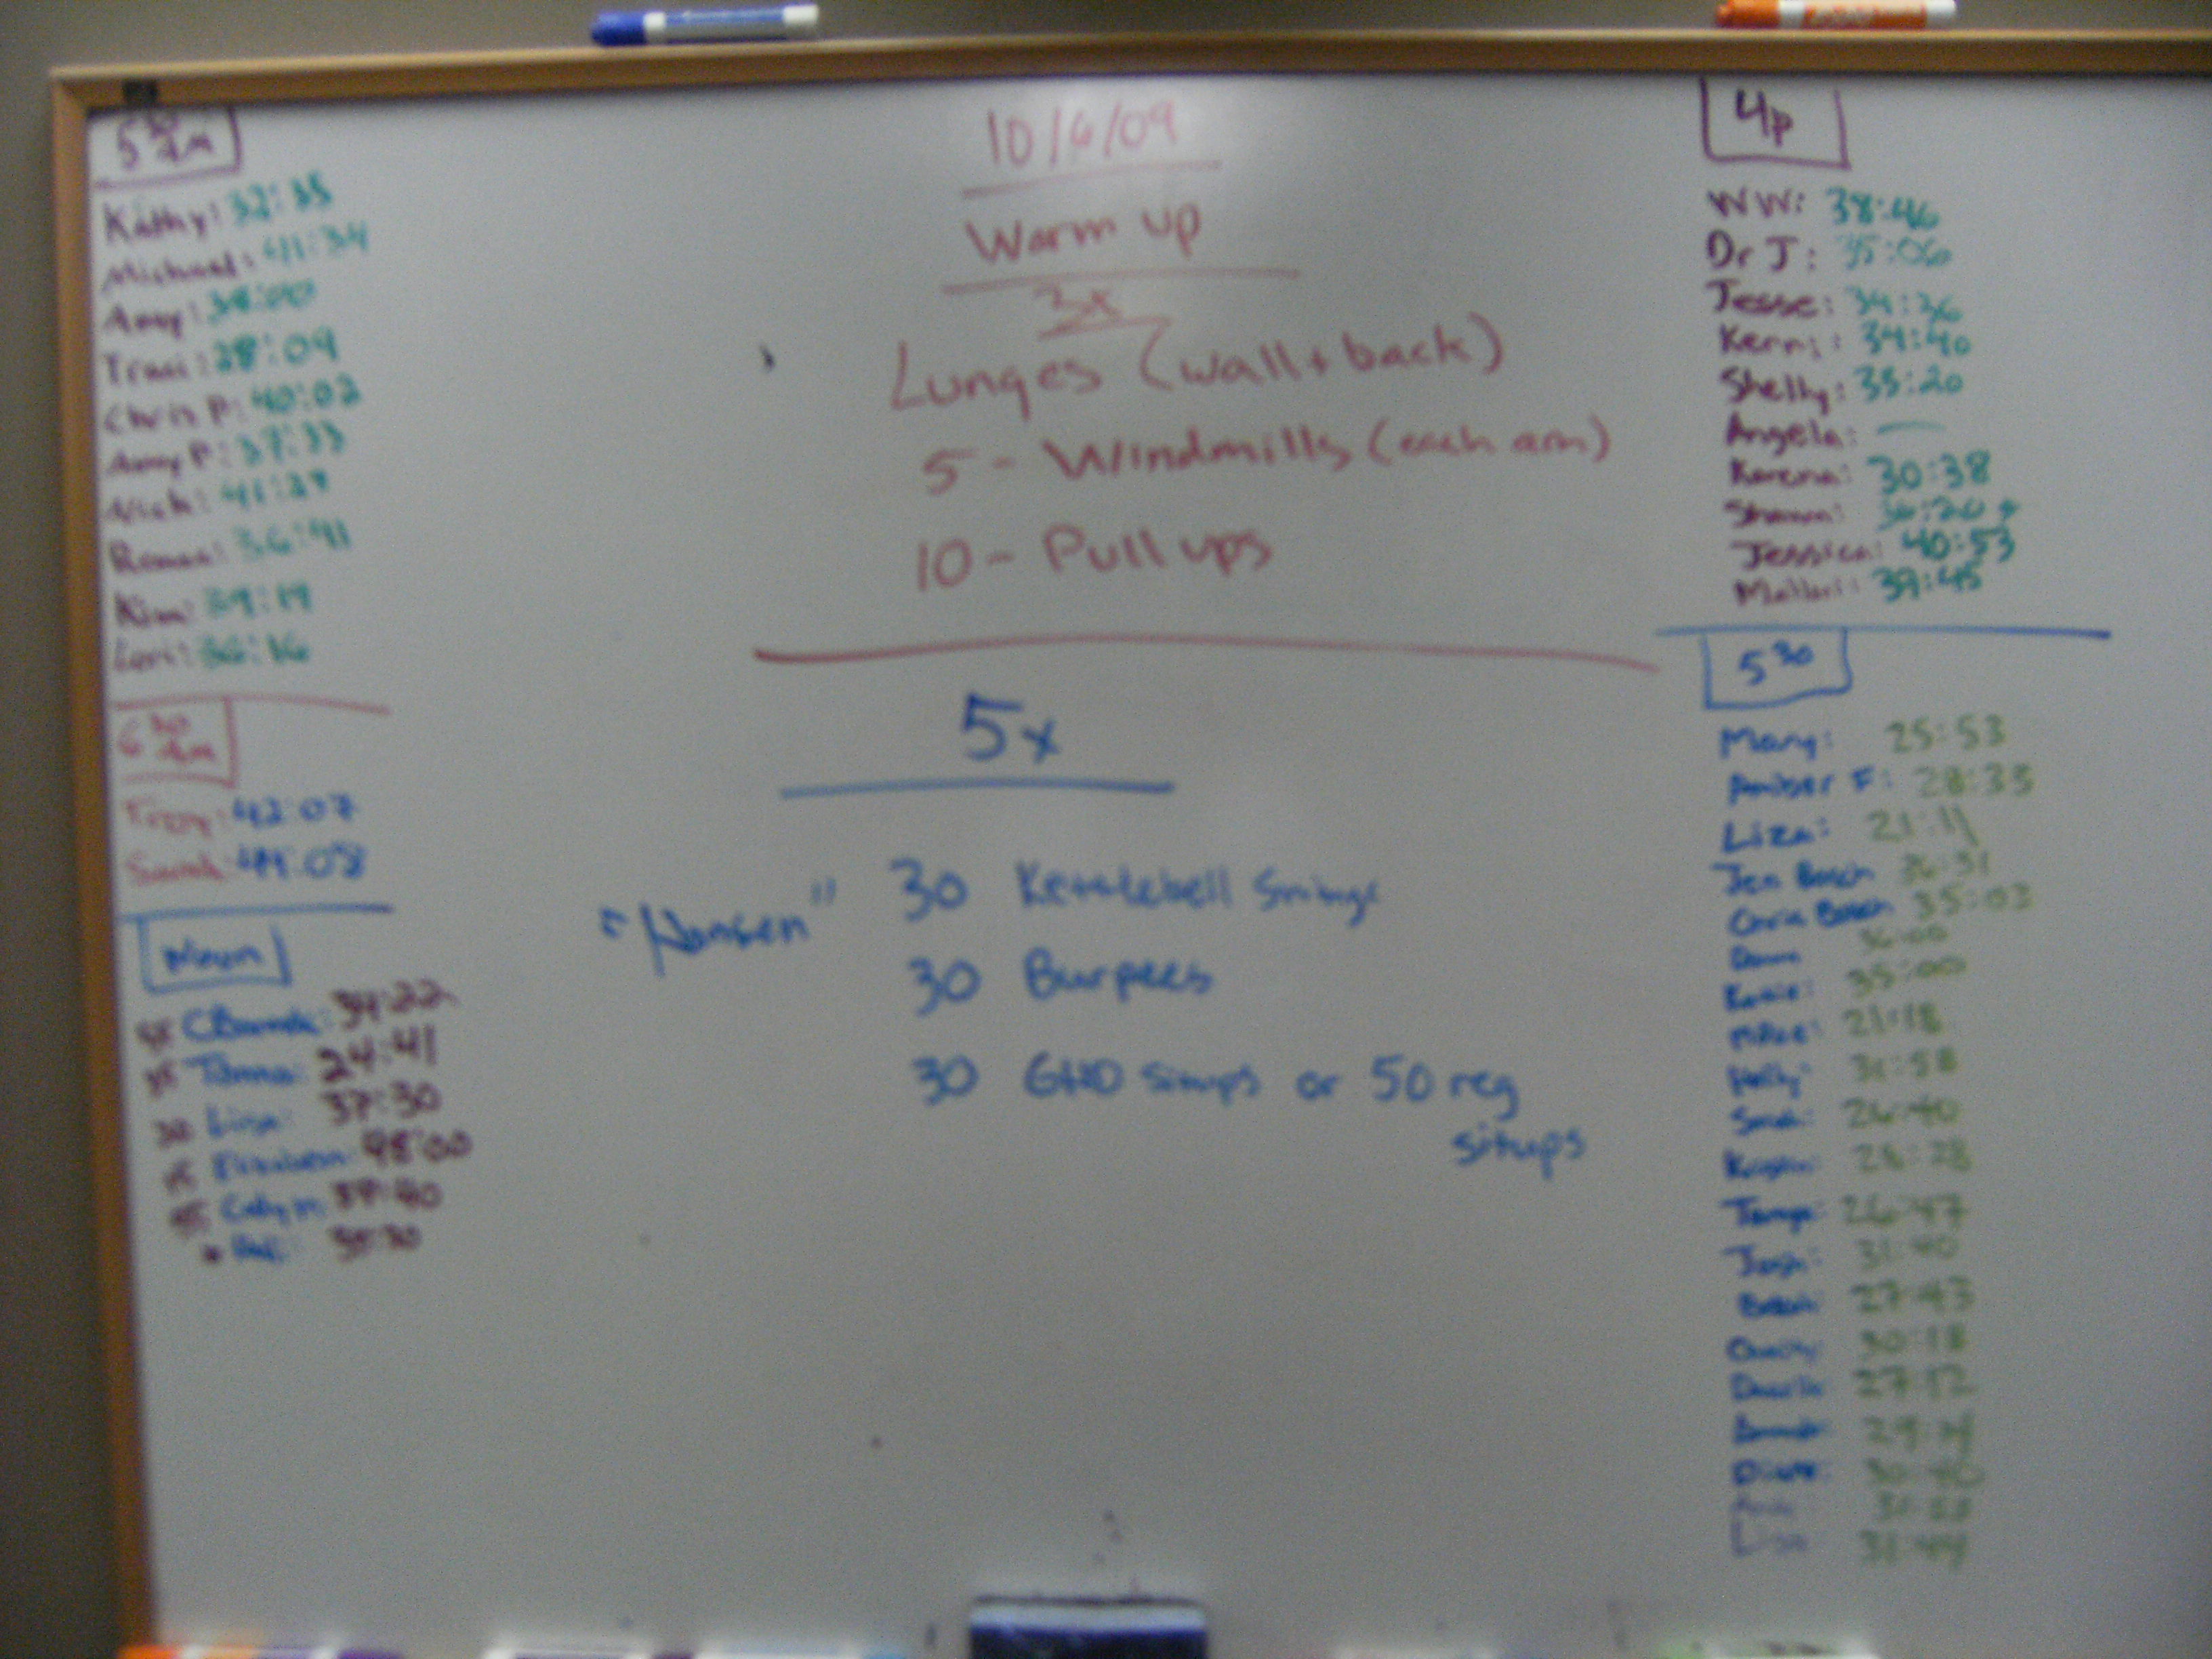 10/6/09
Warm up
3x
Lunges (wall + back)
5 - Windmills (each arm)
10 - Pull ups
5x
"Hansen"
30 Kettlebell Swings
30 Burpees
30 GHD situps or 50 reg
situps
5 30 Am
Kathy: 32:35
Michael: 41:34
Amy: 38:00
Traci: 28:09
Chris P: 40:02
Amy P: 37:33
Nick: 41:27
36:41
Kim: 39:19
Lori: 36:16
6 30 Am
42:07
Sarah: 44:08
Noon
34:22
24:41
Lisa: 37:30
48:00
39:40
35:30
4p
WW: 38:46
Dr J: 35:06
Jesse: 34:36
Kerri: 34:40
Shelly: 35:20
Angela: —
Karena: 30:38
Shawn:
Jessica: 40:53
Mallori: 39:45
5 30
Mary: 25:53
Amber F: 28:35
Liza: 21:11
Jen Bosch 36:31
Chris Bosch 35:03
36:00
Katie: 35:00
21:18
Holly: 31:58
Sarah: 26:40
Kristin: 28:28
Tanya: 26:47
Josh: 31:40
27:43
30:18
27:12
30:40
Lisa 31:44